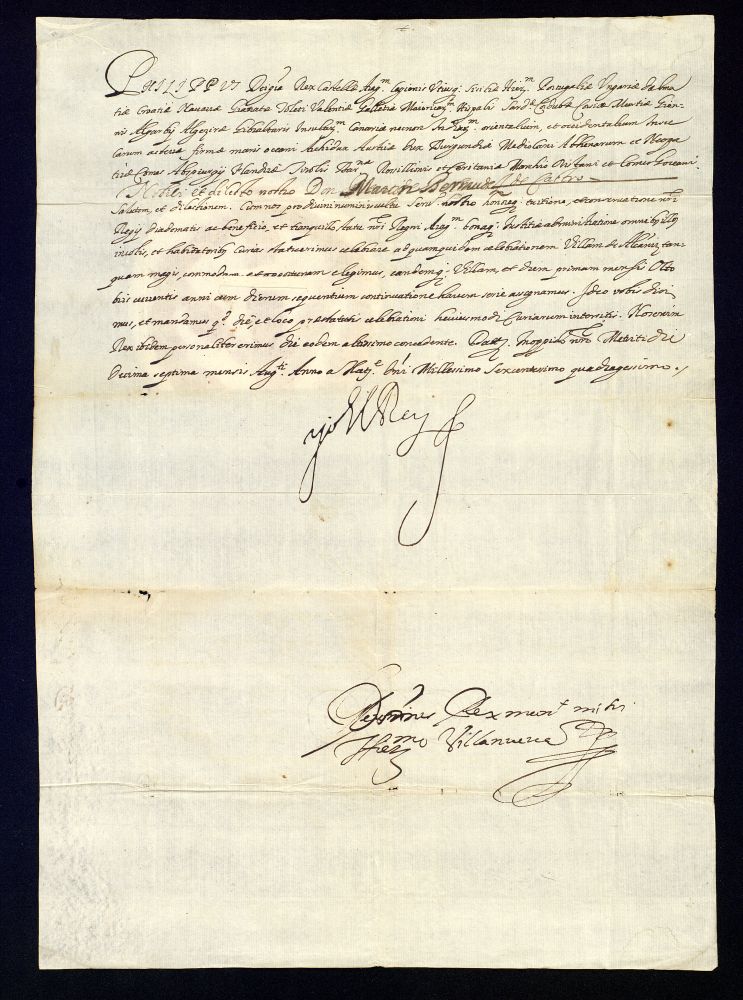 PHILIPPVS Dei grã Rex Castellæ Arag.^m Legionis Vtriusq; Siciliæ Hier.^m Portugaliæ Vngariæ Dalma
tiæ Croatiæ Navarræ Granatæ Toleti Valentiæ Galletiæ Maioricar.^m Hispalis Sard.^æ Cordubæ Corsicæ Murtiæ Gien
nis Algarbij Algeziræ Gibraltaris Insular.^m Canariæ necnon Indiar.^m orientalium, et occidentalium Insu
larum ac terræ firmæ maris oceani Archidux Austriæ Dux Burgundiæ Mediolani Athenarum et Neopa
triæ Comes Abspurgij Flandriæ Tirolis Bar.^næ Rossilionis et Ceritaniæ Marchio Oristani et Comes Goceani
Nobili et dilecto nostro Don Martin Bernaud de Castro
Salutem, et dilectionem. Cum nos pro divini numinis cultu Seru. nostro honoreq; tuitione, et conseruatione nrĩ
Regij diadematis ac beneficio, et tranquillo statu nrĩ Regni Arag.^m bonaq; Iustitiæ administratione omnibus illius
incolis, et habitatoribus Curias statuerimus celebrare ad quam quidem celebrationem Villam de Alcañiz, tan
quam magis, commodam et procuram elegimus, eandemq; Villam, et diem primam mensis Octo
bris currentis anni cum dierum sequentium continuatione harum serie assignamus. Ideo vobis dici
mus, et mandamus q.^d die, et loco præstatutis celebrationi huiusmodi Curiarum intersitis. Nos enim
Rex ibidem personaliter erimus die eodem altissimo concedente. Datt. In oppido nrõ Matriti die
Decima septima mensis Aug.^ti Anno a Nat.^e Dnĩ Millessimo Sexcentesimo quadragesimo./
yo El Rey
Dominus Rex mand.^t mihi
Hier.^mo Villanueva